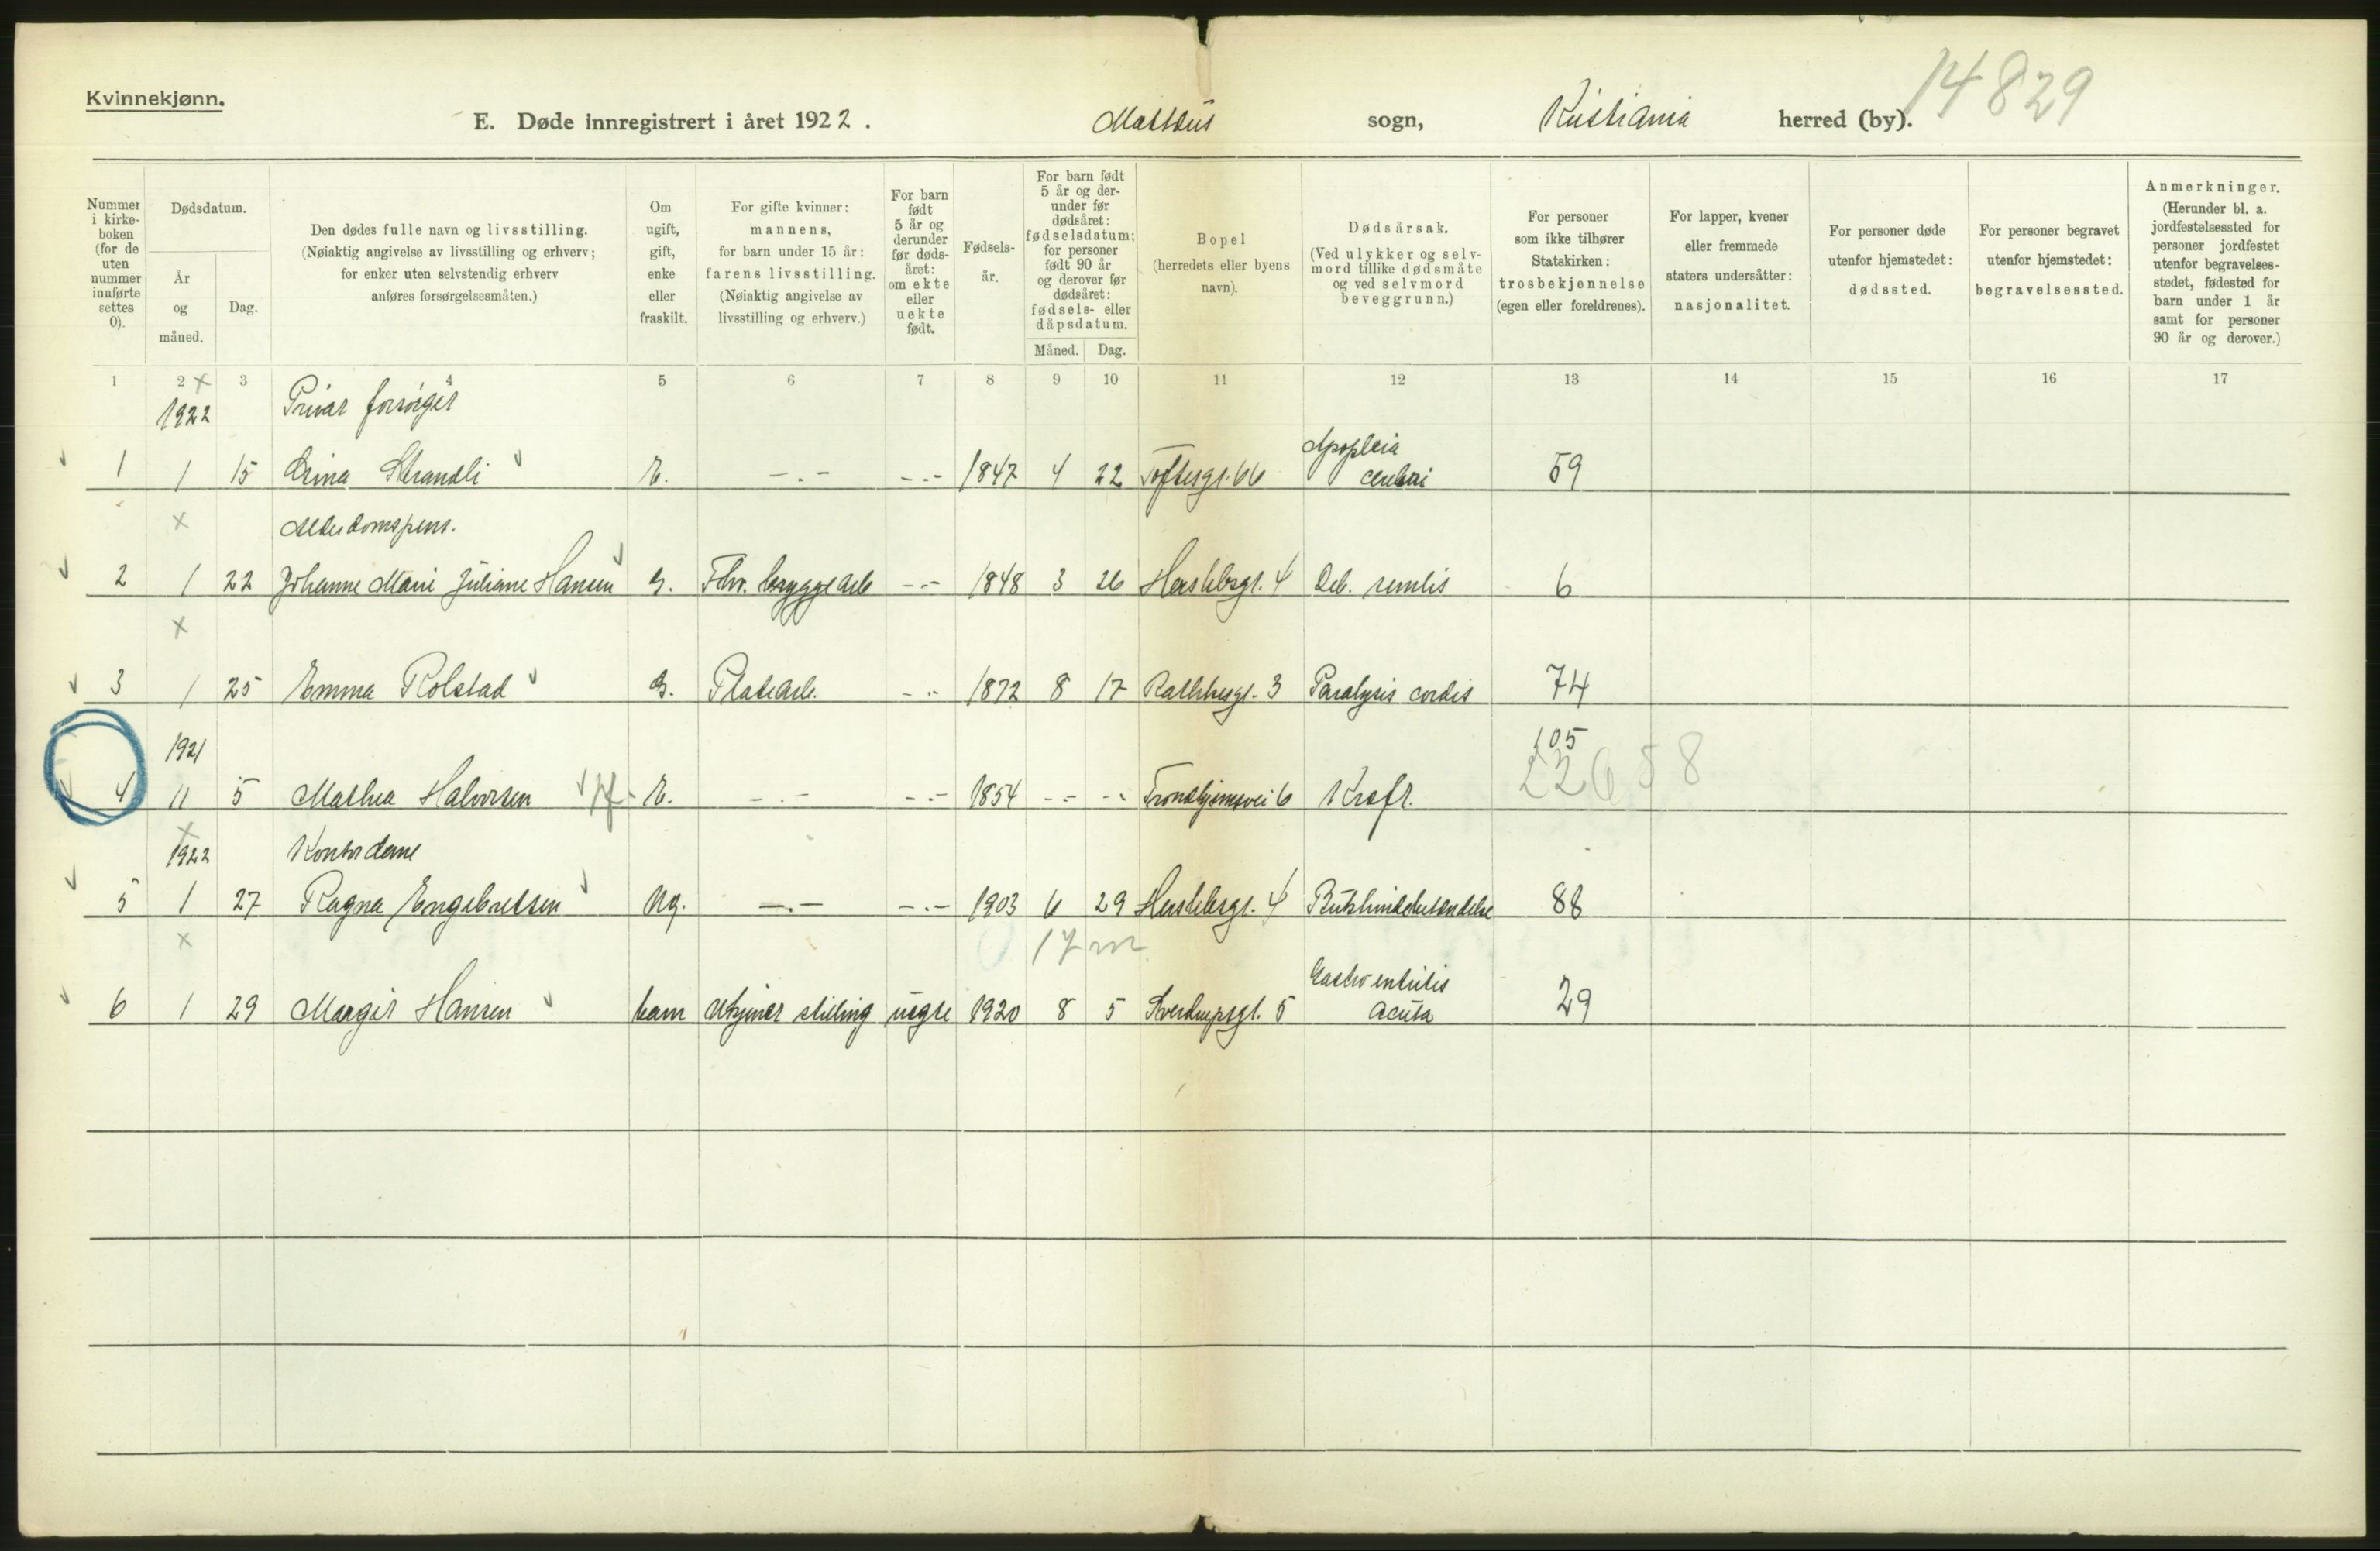 Kvinnekjønn.
14829
E. Døde innregistrert i året 1922. Mattæus sogn, Kristiania herred (by).
Nummer i kirke- boken (for de uten nummer innførte settes 0).
Dødsdatum.
År og måned.
Dag.
Den dødes fulle navn og livsstilling. (Nøiaktig angivelse av livsstilling og erhverv; for enker uten selvstendig erhverv anføres forsørgelsesmåten.)
Om ugift, gift, enke eller fraskilt.
For gifte kvinner: mannens, for barn under 15 år: farens livsstilling. (Nøiaktig angivelse av livsstilling og erhverv.)
For barn født 5 år og derunder før døds- året: om ekte eller uekte født.
Fødsels- år.
For barn født 5 år og der- under før dødsåret: fødselsdatum; for personer født 90 år og derover før dødsåret: fødsels- eller dåpsdatum.
Måned. Dag.
Bopel (herredets eller byens navn).
Dødsårsak. (Ved ulykker og selv- mord tillike dødsmåte og ved selvmord beveggrunn.)
For personer som ikke tilhører Statskirken: trosbekjennelse (egen eller foreldrenes).
For lapper, kvener eller fremmede staters undersåtter: nasjonalitet.
For personer døde utenfor hjemstedet: dødssted.
For personer begravet utenfor hjemstedet: begravelsessted.
Anmerkninger. (Herunder bl. a. jordfestelsessted for personer jordfestet utenfor begravelses- stedet, fødested for barn under 1 år samt for personer 90 år og derover.)
1 2 3 4 5 6 7 8 9 10 11 12 13 14 15 16 17
x
1922 Privat forsørget
1 1 15 Strandli E. -.- -.- 1847 4 22 Toftesgt. 66 Apoplexia cerebri 59
x Alderdomspens.
2 1 22 Johanne Marie Juliane Hansen G. Fhv. bryggearb -.- 1848 3 26 Herslebsgt. 4 Deb. senilis 6
x
3 1 25 Emma Rolstad G. Platearb. -.- 1872 8 17 Rathkesgt. 3 Paralysis cordis 74
1921 105
4 11 5 Mathea Halvorsen E. -.- -.- 1854 -.- -.- Trondhjemsvei 6 Kræft. 22658
x
1922 Kontordame
5 1 27 Ragna Engebretsen Ug. -.- -.- 1903 6 29 Herslebsgt. 4 Bukhindebetændelse 88
x 17 m
6 1 29 Margit Hansen barn Ukjent stilling uegte 1920 8 5 Sverdrupsgt. 5 Gastroenteritis acuta 29